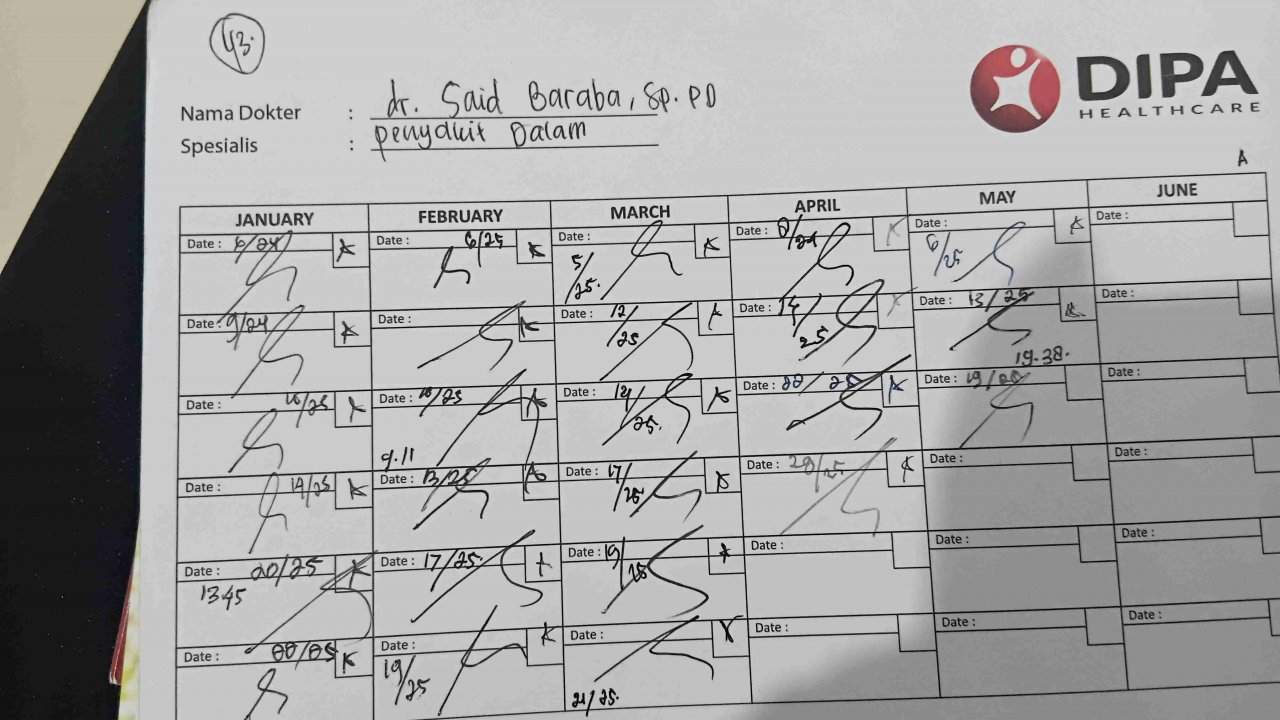 43.
DIPA
HEALTHCARE
Nama Dokter : dr. Said Baraba, Sp. PD
Spesialis : Penyakit Dalam
A
JANUARY FEBRUARY MARCH APRIL MAY JUNE
Date : 6/24 Date : 6/25 Date : 5/25. Date : Date : 6/25 Date :
Date : 9/24 Date : Date : 12/25 Date : 14/25 Date : 13/25 Date :
19.38.
Date : 16/25 Date : 10/25 Date : 14/25. Date : 22/25 Date : 19/25 Date :
9.11
Date : 14/25 Date : 13/25 Date : 17/25 Date : 28/25 Date : Date :
Date : 20/25 Date : 17/25. Date : 19/25 Date : Date : Date :
13.45
Date : Date : 19/25 Date : 21/25. Date : Date : Date :